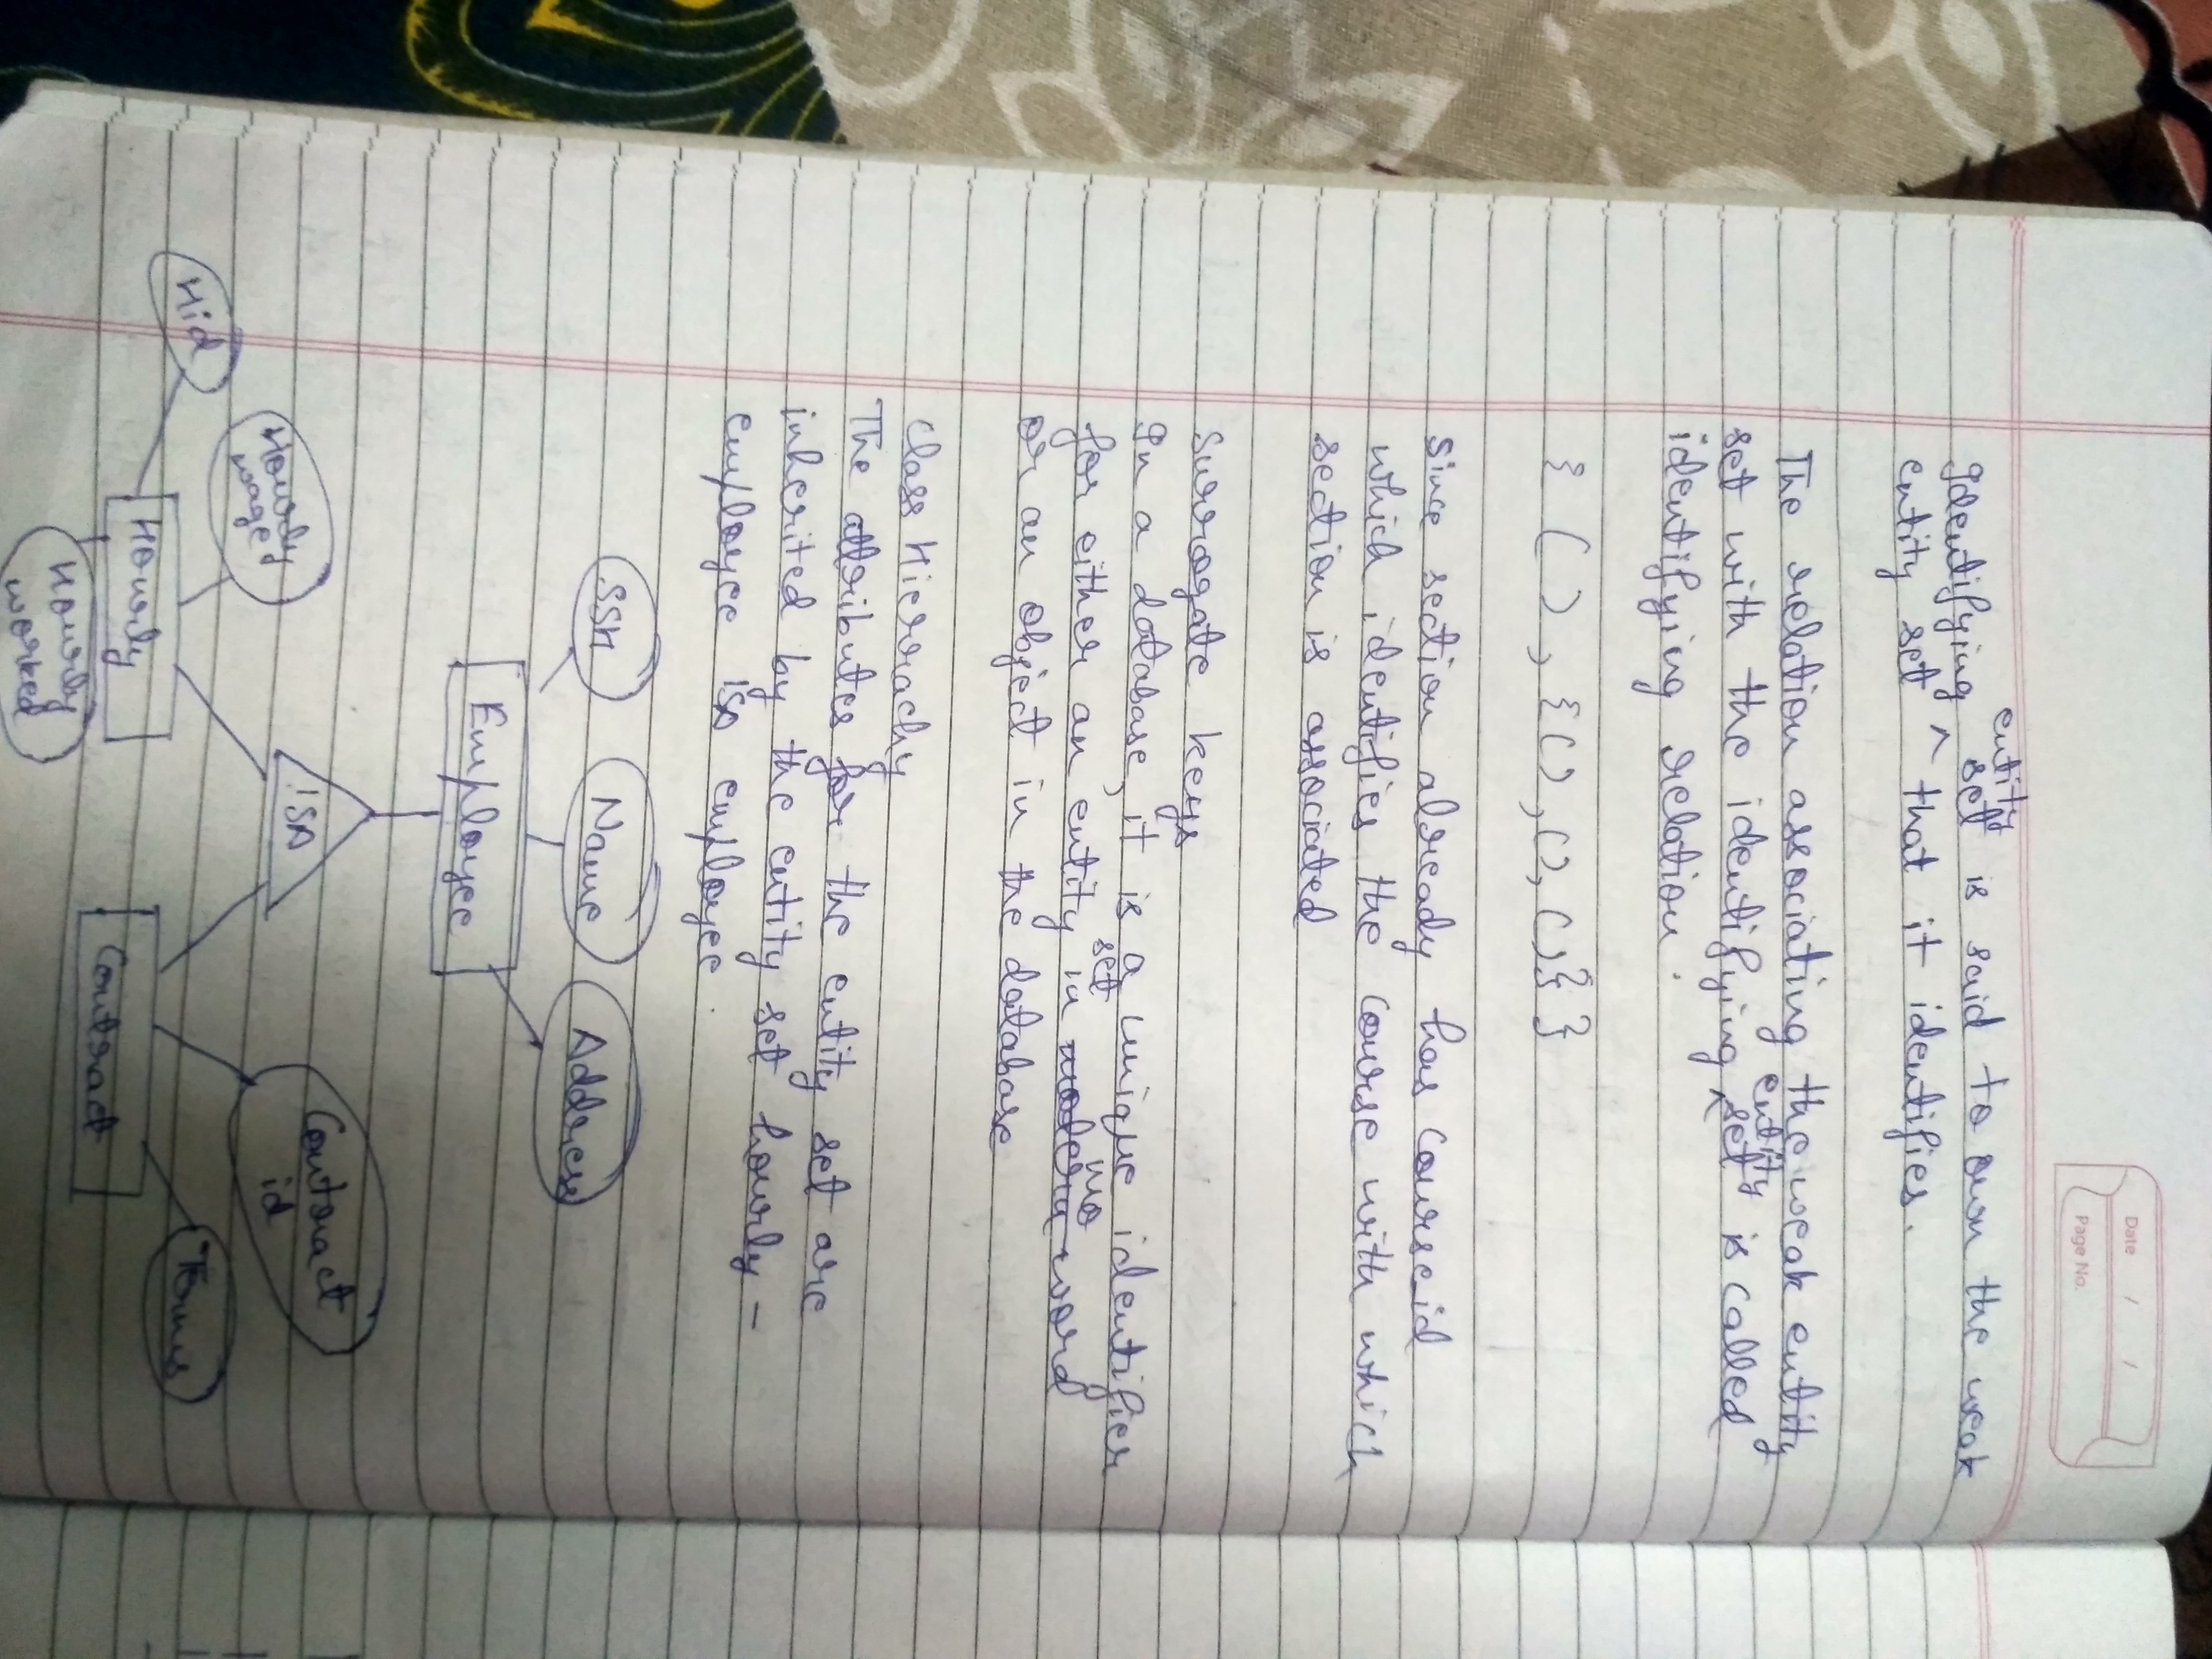 Date / /
Page No.
entity
Identifying set is said to own the weak
entity set ^ that it identifies.
The relation associating the weak entity
entity
set with the identifying ^ set is called
identifying relation.
{ ( ) , { ( ) , ( ) , ( ) } }
Since section already has courseid
which identifies the course with which
section is associated
Surrogate keys
In a database, it is a unique identifier
set
for either an entity in word
or an object in the database
Class Hierrachy
The attributes for the entity set are
inherited by the entity set hourly -
employee ISA employee.
SSN Name Address
Employee
ISA
Hid Hourly wage Contract id
Hourly Contract Terms
Hourly worked